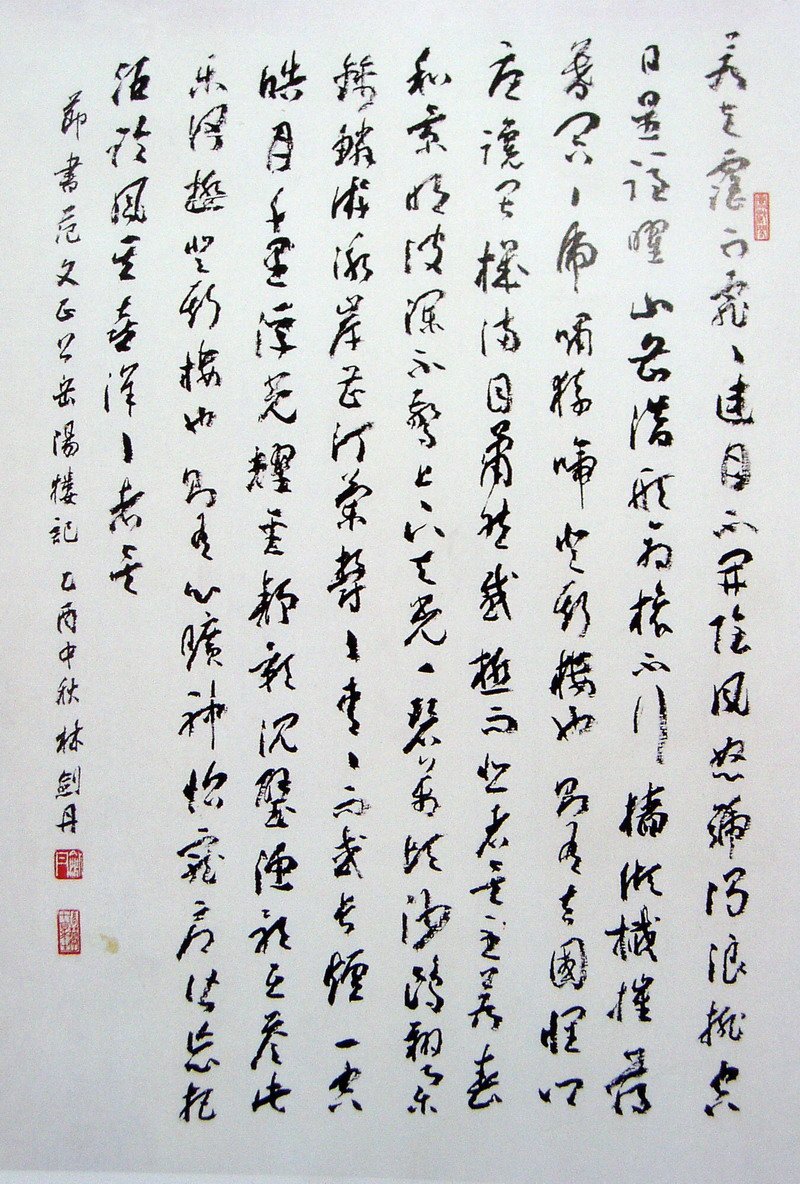 若夫霪雨霏々連月不開陰風怒號濁浪排空
日星隱曜山岳潛形商旅不行檣傾檝摧薄
暮冥々虎嘯猿啼登斯樓也則有去國懷鄉
憂讒畏譏滿目蕭然感極而悲者矣至若春
和景明波瀾不驚上下天光一碧萬頃沙鷗翔集
錦鱗游泳岸芷汀蘭郁々青々而或長煙一空
皓月千里浮光耀金靜影沉璧漁歌互答此
樂何極登斯樓也則有心曠神怡寵辱偕忘把
酒臨風其喜洋々者矣
節書范文正公岳陽樓記 乙酉中秋 林劍丹